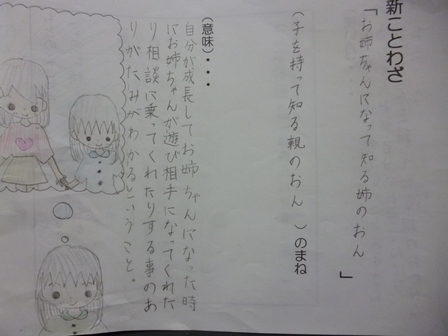 新ことわざ
「お姉ちゃんになって知る姉のおん」
(子を持って知る親のおん)のまね
(意味)・・・
自分が成長してお姉ちゃんになった時
にお姉ちゃんが遊び相手になってくれた
り相談に乗ってくれたりする事のあ
りがたみがわかるということ。